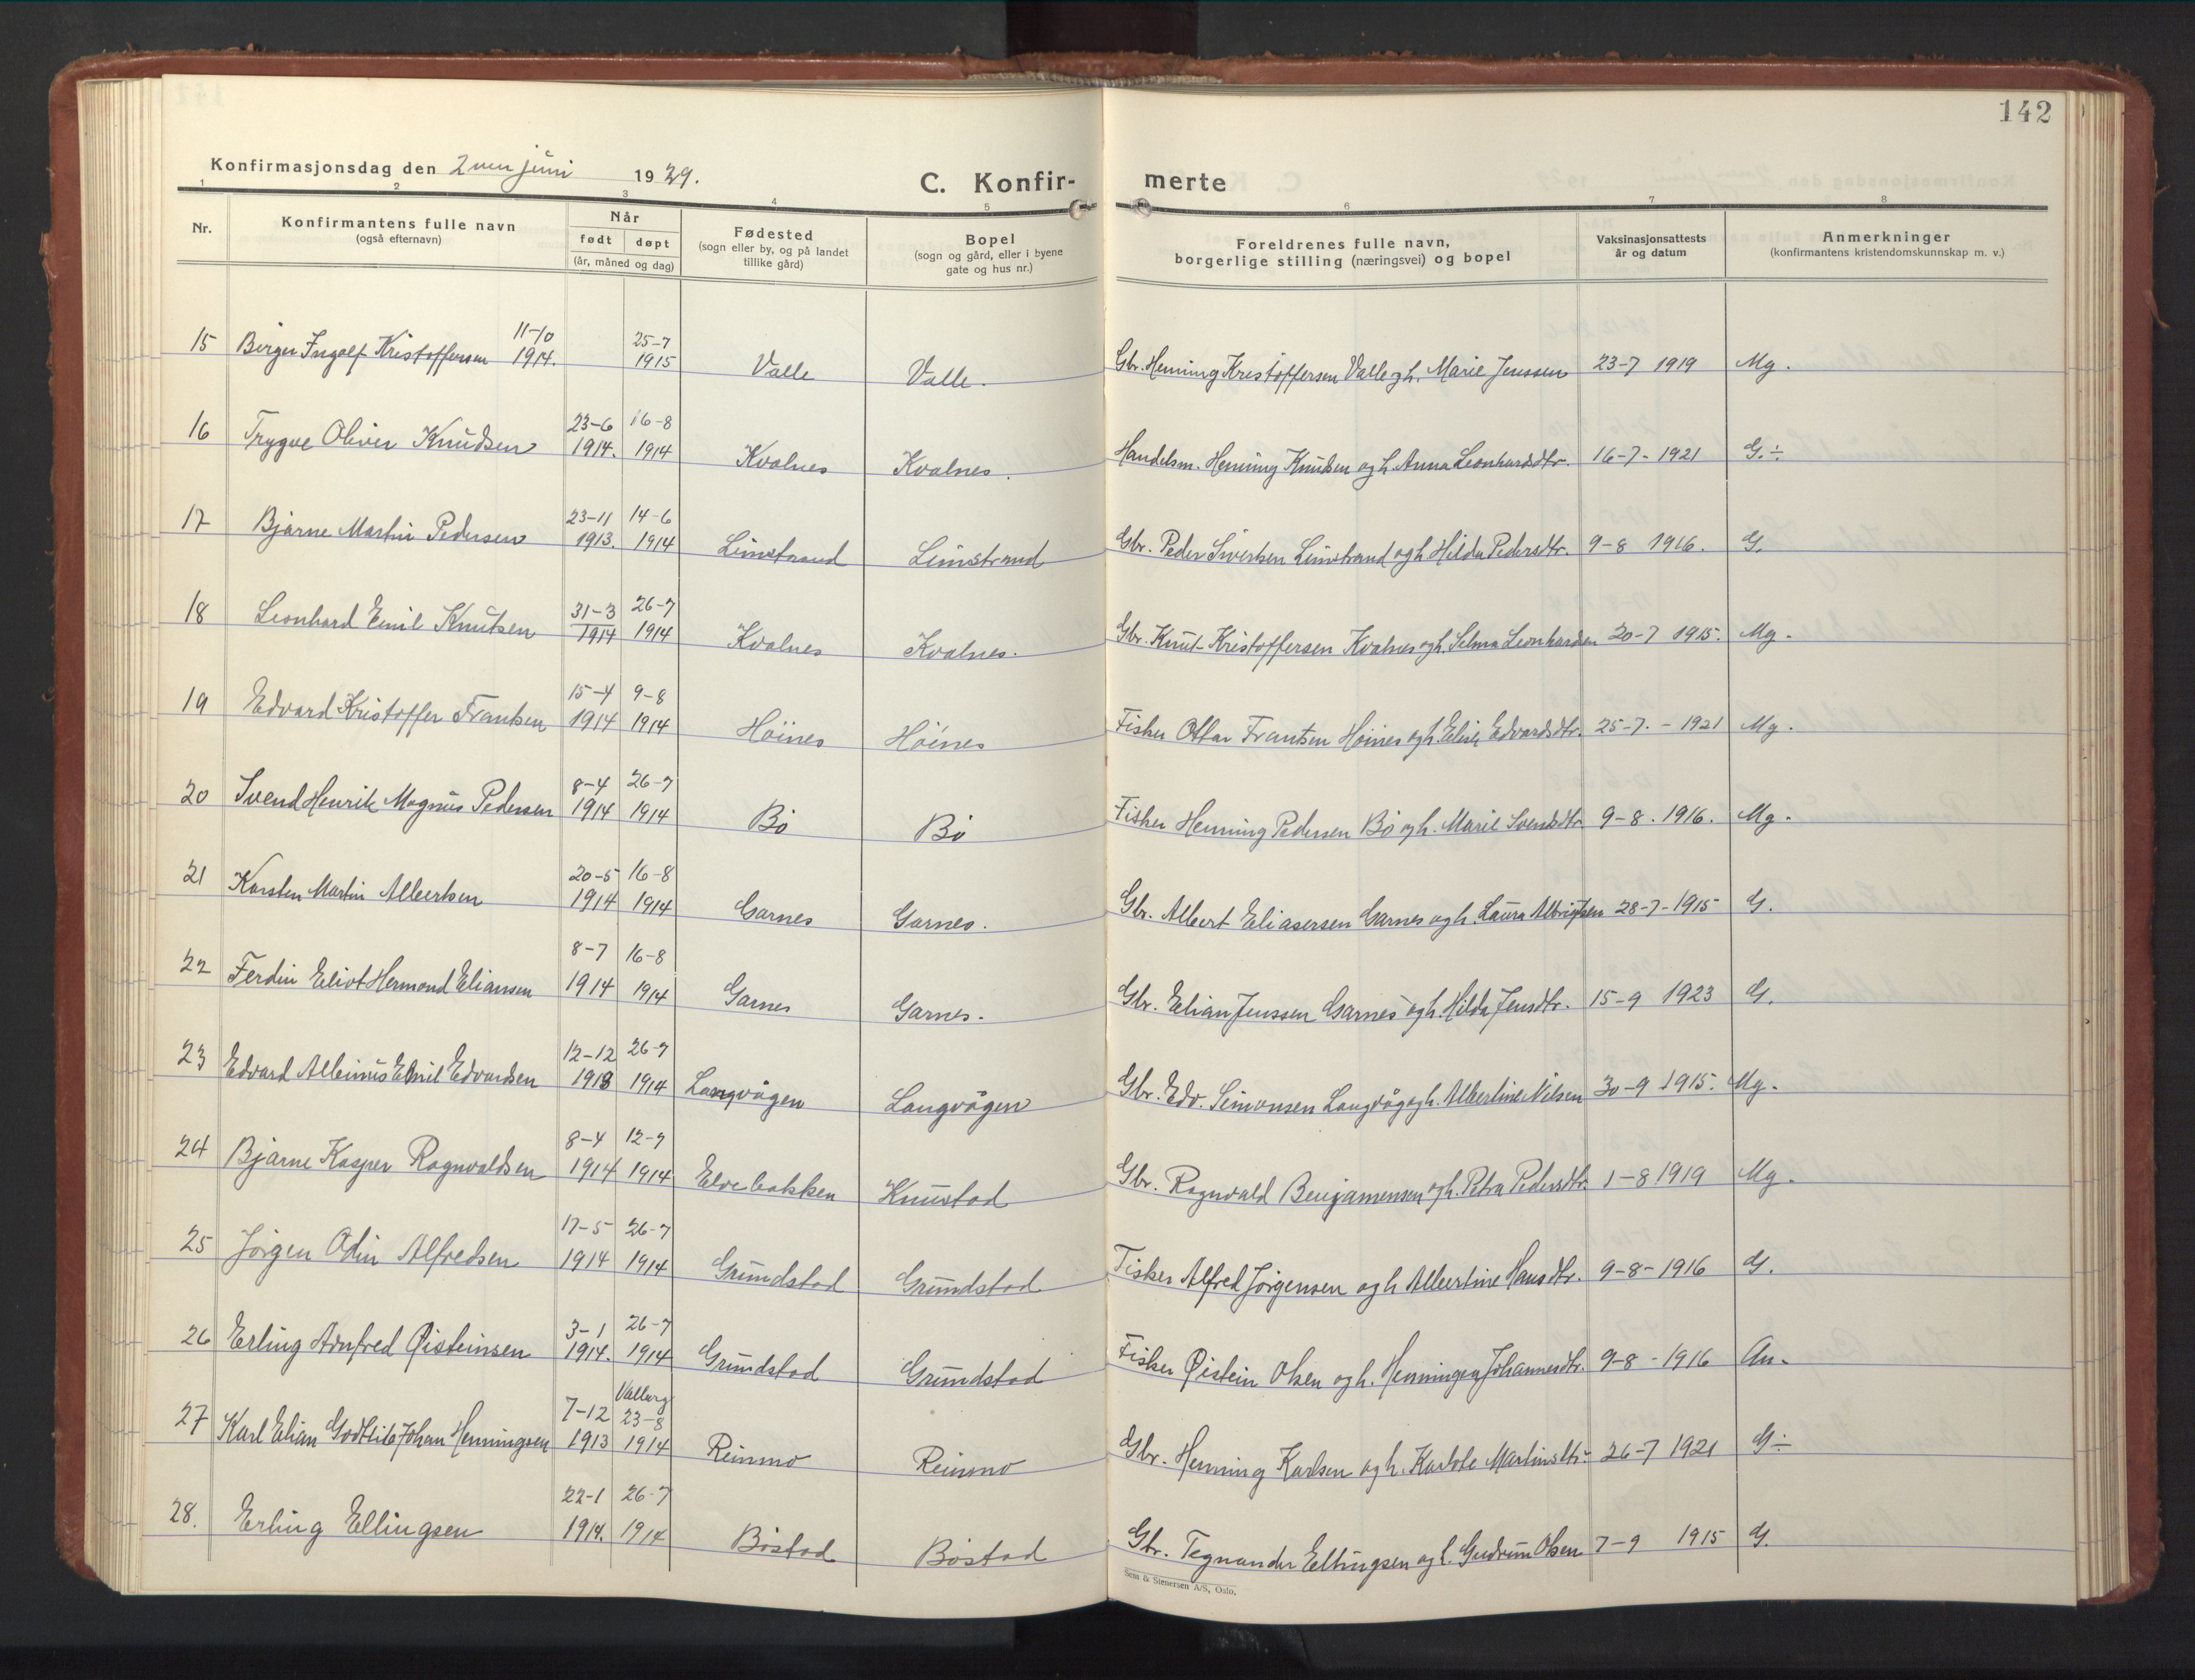 142
Konfirmasjonsdag den 2nen juni 1929.
C. Konfir- merte
1 2 3 4 5 6 7 8
Nr.
Konfirmantens fulle navn
(også efternavn)
Når
født døpt
(år, måned og dag)
Fødested
(sogn eller by, og på landet
tillike gård)
Bopel
(sogn og gård, eller i byene
gate og hus nr.)
Foreldrenes fulle navn,
borgerlige stilling (næringsvei) og bopel
Vaksinasjonsattests
år og datum
Anmerkninger
(konfirmantens kristendomskunnskap m. v.)
11-10 25-7
15 Birger Ingolf Kristoffersen 1914. 1915 Valle Valle. Gbr. Henning Kristoffersen Valle og h. Marie Jenssen 23-7 1919 Mg.
23-6 16-8
16 Trygve Oliver Knudsen 1914. 1914 Kvalnes Kvalnes. Handelsm. Henning Knudsen og h. Anna Leonhardsdtr. 16-7-1921 G.÷
23-11 14-6
17 Bjarne Martin Pedersen 1913. 1914 Limstrand Limstrand Gbr. Peder Sivertsen Limstrand og h Hilda Pedersdtr. 9-8 1916. G.
31-3 26-7
18 Leonhard Emil Knutsen 1914 1914 Kvalnes Kvalnes. Gbr. Knut Kristoffersen Kvalnes og h. Selma Leonhardsen 20-7 1915. Mg.
15-4 9-8
19 Edvard Kristoffer Frantsen 1914 1914 Höines Höines Fisker Ottar Frantsen Höines og h. Elise Edvardsdtr. 25-7.-1921 Mg.
8-4 26-7
20 Svend Henrik Magnus Pedersen 1914 1914 Bö Bö Fisker Henning Pedersen Bö og h. Marie Svendsdtr 9-8. 1916. Mg.
20-5 16-8
21 Karsten Martin Albertsen 1914 1914 Garnes Garnes. Gbr. Albert Eliasersen Garnes og h. Laura Albrigtsen 28-7-1915 G.
8-7 16-8
22 Ferdin Eliot Hermond Eliansen 1914 1914 Garnes Garnes. Gbr. Elian Jenssen Garnes og h. Hilda Jensdtr. 15-9 1923 G.
12-12 26-7
23 Edvard Albinus Emil Edvardsen 1913 1914 Langvågen Langvågen Gbr. Edv. Simonsen Langvåg og h. Albertine Nilsen 30-9 1915. Mg.
8-4 12-7
24 Bjarne Kasper Ragnvaldsen 1914 1914 Elvebakken Knustad Gbr. Ragnvald Benjamensen og h. Petra Pedersdtr. 1-8 1919 Mg.
17-5 26-7
25 Jörgen Odin Alfredsen 1914 1914 Grundstad Grundstad Fisker Alfred Jörgensen og h Albertine Hansdtr. 9-8-1916 G.
3-1 26-7
26 Erling Arnfred Øisteinsen 1914. 1914 Grundstad Grundstad Fisker Øistein Olsen og h. Henningea Johannesdtr. 9-8-1916 An.
Valberg
7-12 23-8
27 Karl Elian Godtlib Johan Henningsen 1913 1914 Reinmo Reinmo Gbr. Henning Karlsen og h. Karlote Martinsdtr. 26-7 1921 G÷
22-1 26-7
28. Erling Ellingsen 1914. 1914 Böstad Böstad Gbr. Tegnander Ellingsen og h. Gudrun Olsen 7-9 1915 G.
Sem & Stenersen A/S, Oslo.